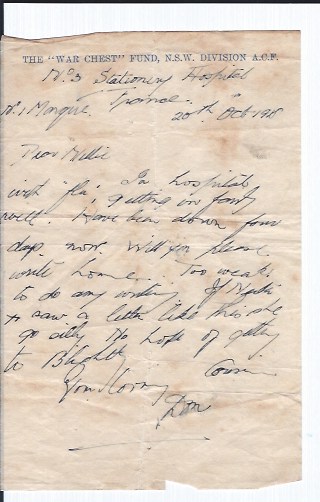 THE "WAR CHEST" FUND, N.S.W. DIVISION A.C.F.
No 3 Stationery Hospital
France.
20th Oct 1918
Dear Nellie
In hospital
with 'flu. Getting on fairly
well. Have been down four
days now. Will you please
write home. Too weak
to do any writing. If
saw a letter like this she
go silly. No hope of getting
to Blighty
Your loving Cousin
Don